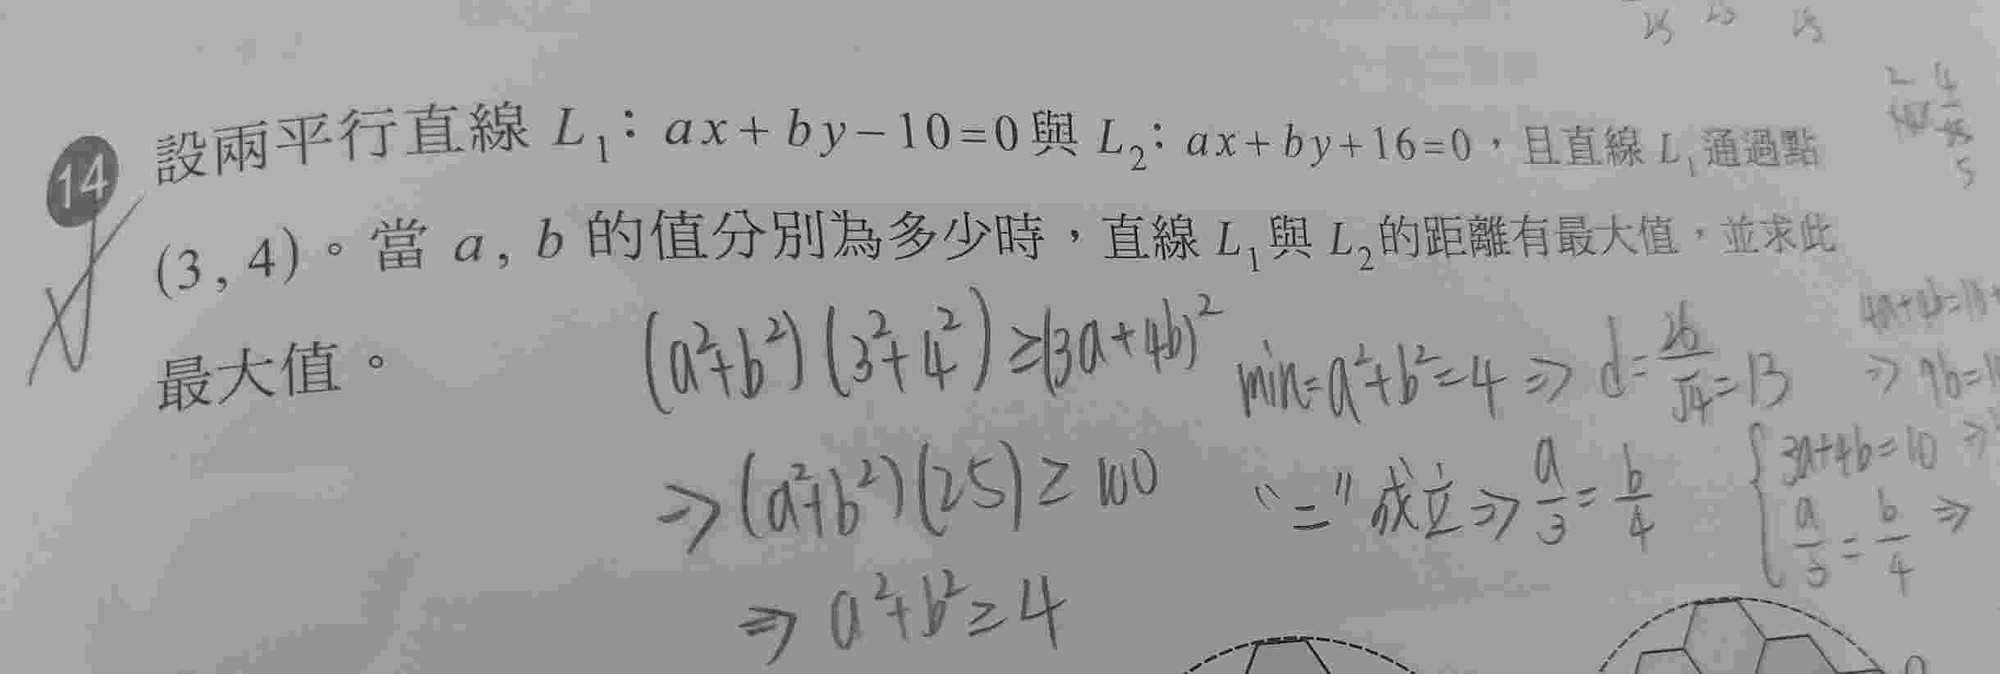 14 設兩平行直線 L₁：ax+by-10=0與 L₂：ax+by+16=0，且直線 L₁通過點
(3, 4)。當 a, b 的值分別為多少時，直線 L₁與 L₂的距離有最大值，並求此
最大值。
(a²+b²)(3²+4²)≥(3a+4b)²
⇒(a²+b²)(25)≥100
⇒ a²+b²≥4
min=a²+b²=4 ⇒ d=26/√4=13
"="成立⇒a/3=b/4
{3a+4b=10 ⇒
a/3=b/4 ⇒